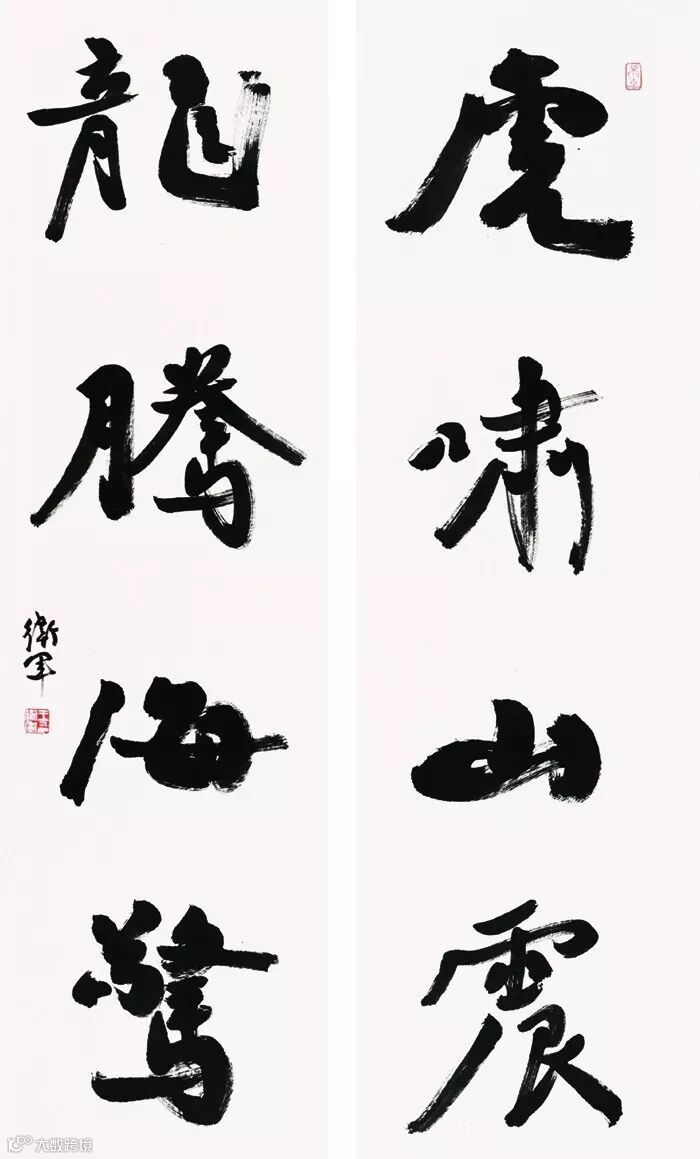 虎啸山震
龍騰海驚
衛軍
大数跨境